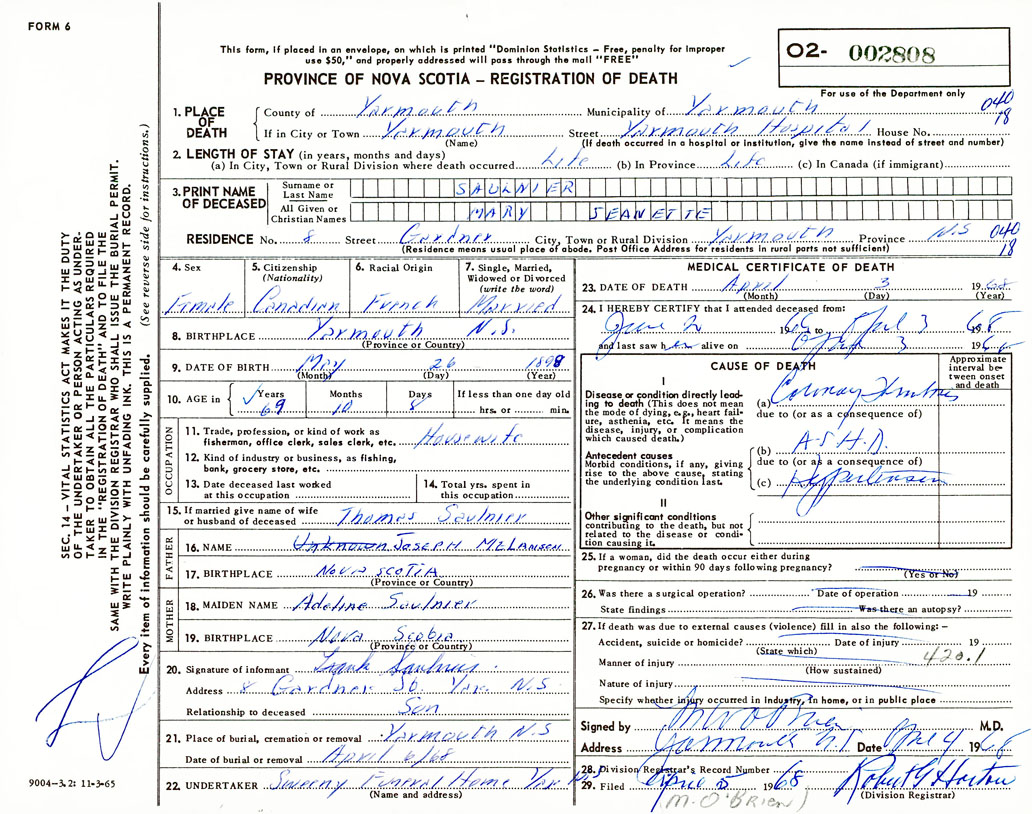 FORM 6
This form, if placed in an envelope, on which is printed "Dominion Statistics – Free, penalty for improper
use $50," and properly addressed will pass through the mail "FREE"
O2- 002808
PROVINCE OF NOVA SCOTIA – REGISTRATION OF DEATH
For use of the Department only
1. PLACE OF DEATH County of Yarmouth Municipality of Yarmouth 040
If in City or Town Yarmouth Street Yarmouth Hospital House No. 18
(Name) (If death occurred in a hospital or institution, give the name instead of street and number)
2. LENGTH OF STAY (in years, months and days)
(a) In City, Town or Rural Division where death occurred. Life (b) In Province Life (c) In Canada (if immigrant)
3. PRINT NAME OF DECEASED
Surname or Last Name SAULNIER
All Given or Christian Names MARY JEANETTE
RESIDENCE No. 8 Street Gardner City, Town or Rural Division Yarmouth Province N.S 040
(Residence means usual place of abode. Post Office Address for residents in rural parts not sufficient) 18
4. Sex Female
5. Citizenship (Nationality) Canadian
6. Racial Origin French
7. Single, Married, Widowed or Divorced (write the word) Married
8. BIRTHPLACE Yarmouth N.S.
(Province or Country)
9. DATE OF BIRTH May 26 1898
(Month) (Day) (Year)
10. AGE in Years 69 Months 10 Days 8 If less than one day old
hrs. or min.
OCCUPATION
11. Trade, profession, or kind of work as
fisherman, office clerk, sales clerk, etc. Housewife
12. Kind of industry or business, as fishing,
bank, grocery store, etc.
13. Date deceased last worked
at this occupation
14. Total yrs. spent in
this occupation
15. If married give name of wife
or husband of deceased Thomas Saulnier
FATHER
16. NAME Unknown JOSEPH MELANSON
17. BIRTHPLACE NOVA SCOTIA
(Province or Country)
MOTHER
18. MAIDEN NAME Adeline Saulnier
19. BIRTHPLACE Nova Scotia
(Province or Country)
20. Signature of informant Frank Saulnier
Address 8 Gardner St. Yar. N.S
Relationship to deceased Son
21. Place of burial, cremation or removal Yarmouth N.S
Date of burial or removal April 6/68
22. UNDERTAKER Sweeny Funeral Home Yar N.S
(Name and address)
MEDICAL CERTIFICATE OF DEATH
23. DATE OF DEATH April 3 1968
(Month) (Day) (Year)
24. I HEREBY CERTIFY that I attended deceased from:
June 2 19 to April 3 1968
and last saw her alive on April 3 1968
CAUSE OF DEATH
Approximate interval between onset and death
I
Disease or condition directly leading to death (This does not mean the mode of dying, e.g., heart failure, asthenia, etc. It means the disease, injury, or complication which caused death.)
(a) Coronary Thrombosis
due to (or as a consequence of)
Antecedent causes
Morbid conditions, if any, giving rise to the above cause, stating the underlying condition last.
(b) A.S.H.D.
due to (or as a consequence of)
(c) Hypertension
II
Other significant conditions
contributing to the death, but not related to the disease or condition causing it.
25. If a woman, did the death occur either during
pregnancy or within 90 days following pregnancy?
(Yes or No)
26. Was there a surgical operation? Date of operation 19
State findings Was there an autopsy?
27. If death was due to external causes (violence) fill in also the following: –
Accident, suicide or homicide? Date of injury 19
(State which) 420.1
Manner of injury
(How sustained)
Nature of injury
Specify whether injury occurred in Industry, in home, or in public place
Signed by O'Brien M.D.
Address Yarmouth N.S Date April 4 1968
28. Division Registrar's Record Number
29. Filed April 5 1968 Robert G Horton
(M. O'BRIEN) (Division Registrar)
SEC. 14 – VITAL STATISTICS ACT MAKES IT THE DUTY
OF THE UNDERTAKER OR PERSON ACTING AS UNDER-
TAKER TO OBTAIN ALL THE PARTICULARS REQUIRED
IN THE "REGISTRATION OF DEATH" AND TO FILE THE
SAME WITH THE DIVISION REGISTRAR WHO SHALL ISSUE THE BURIAL PERMIT.
WRITE PLAINLY WITH UNFADING INK. THIS IS A PERMANENT RECORD.
Every item of information should be carefully supplied. (See reverse side for instructions.)
9004–3.2: 11-3-65